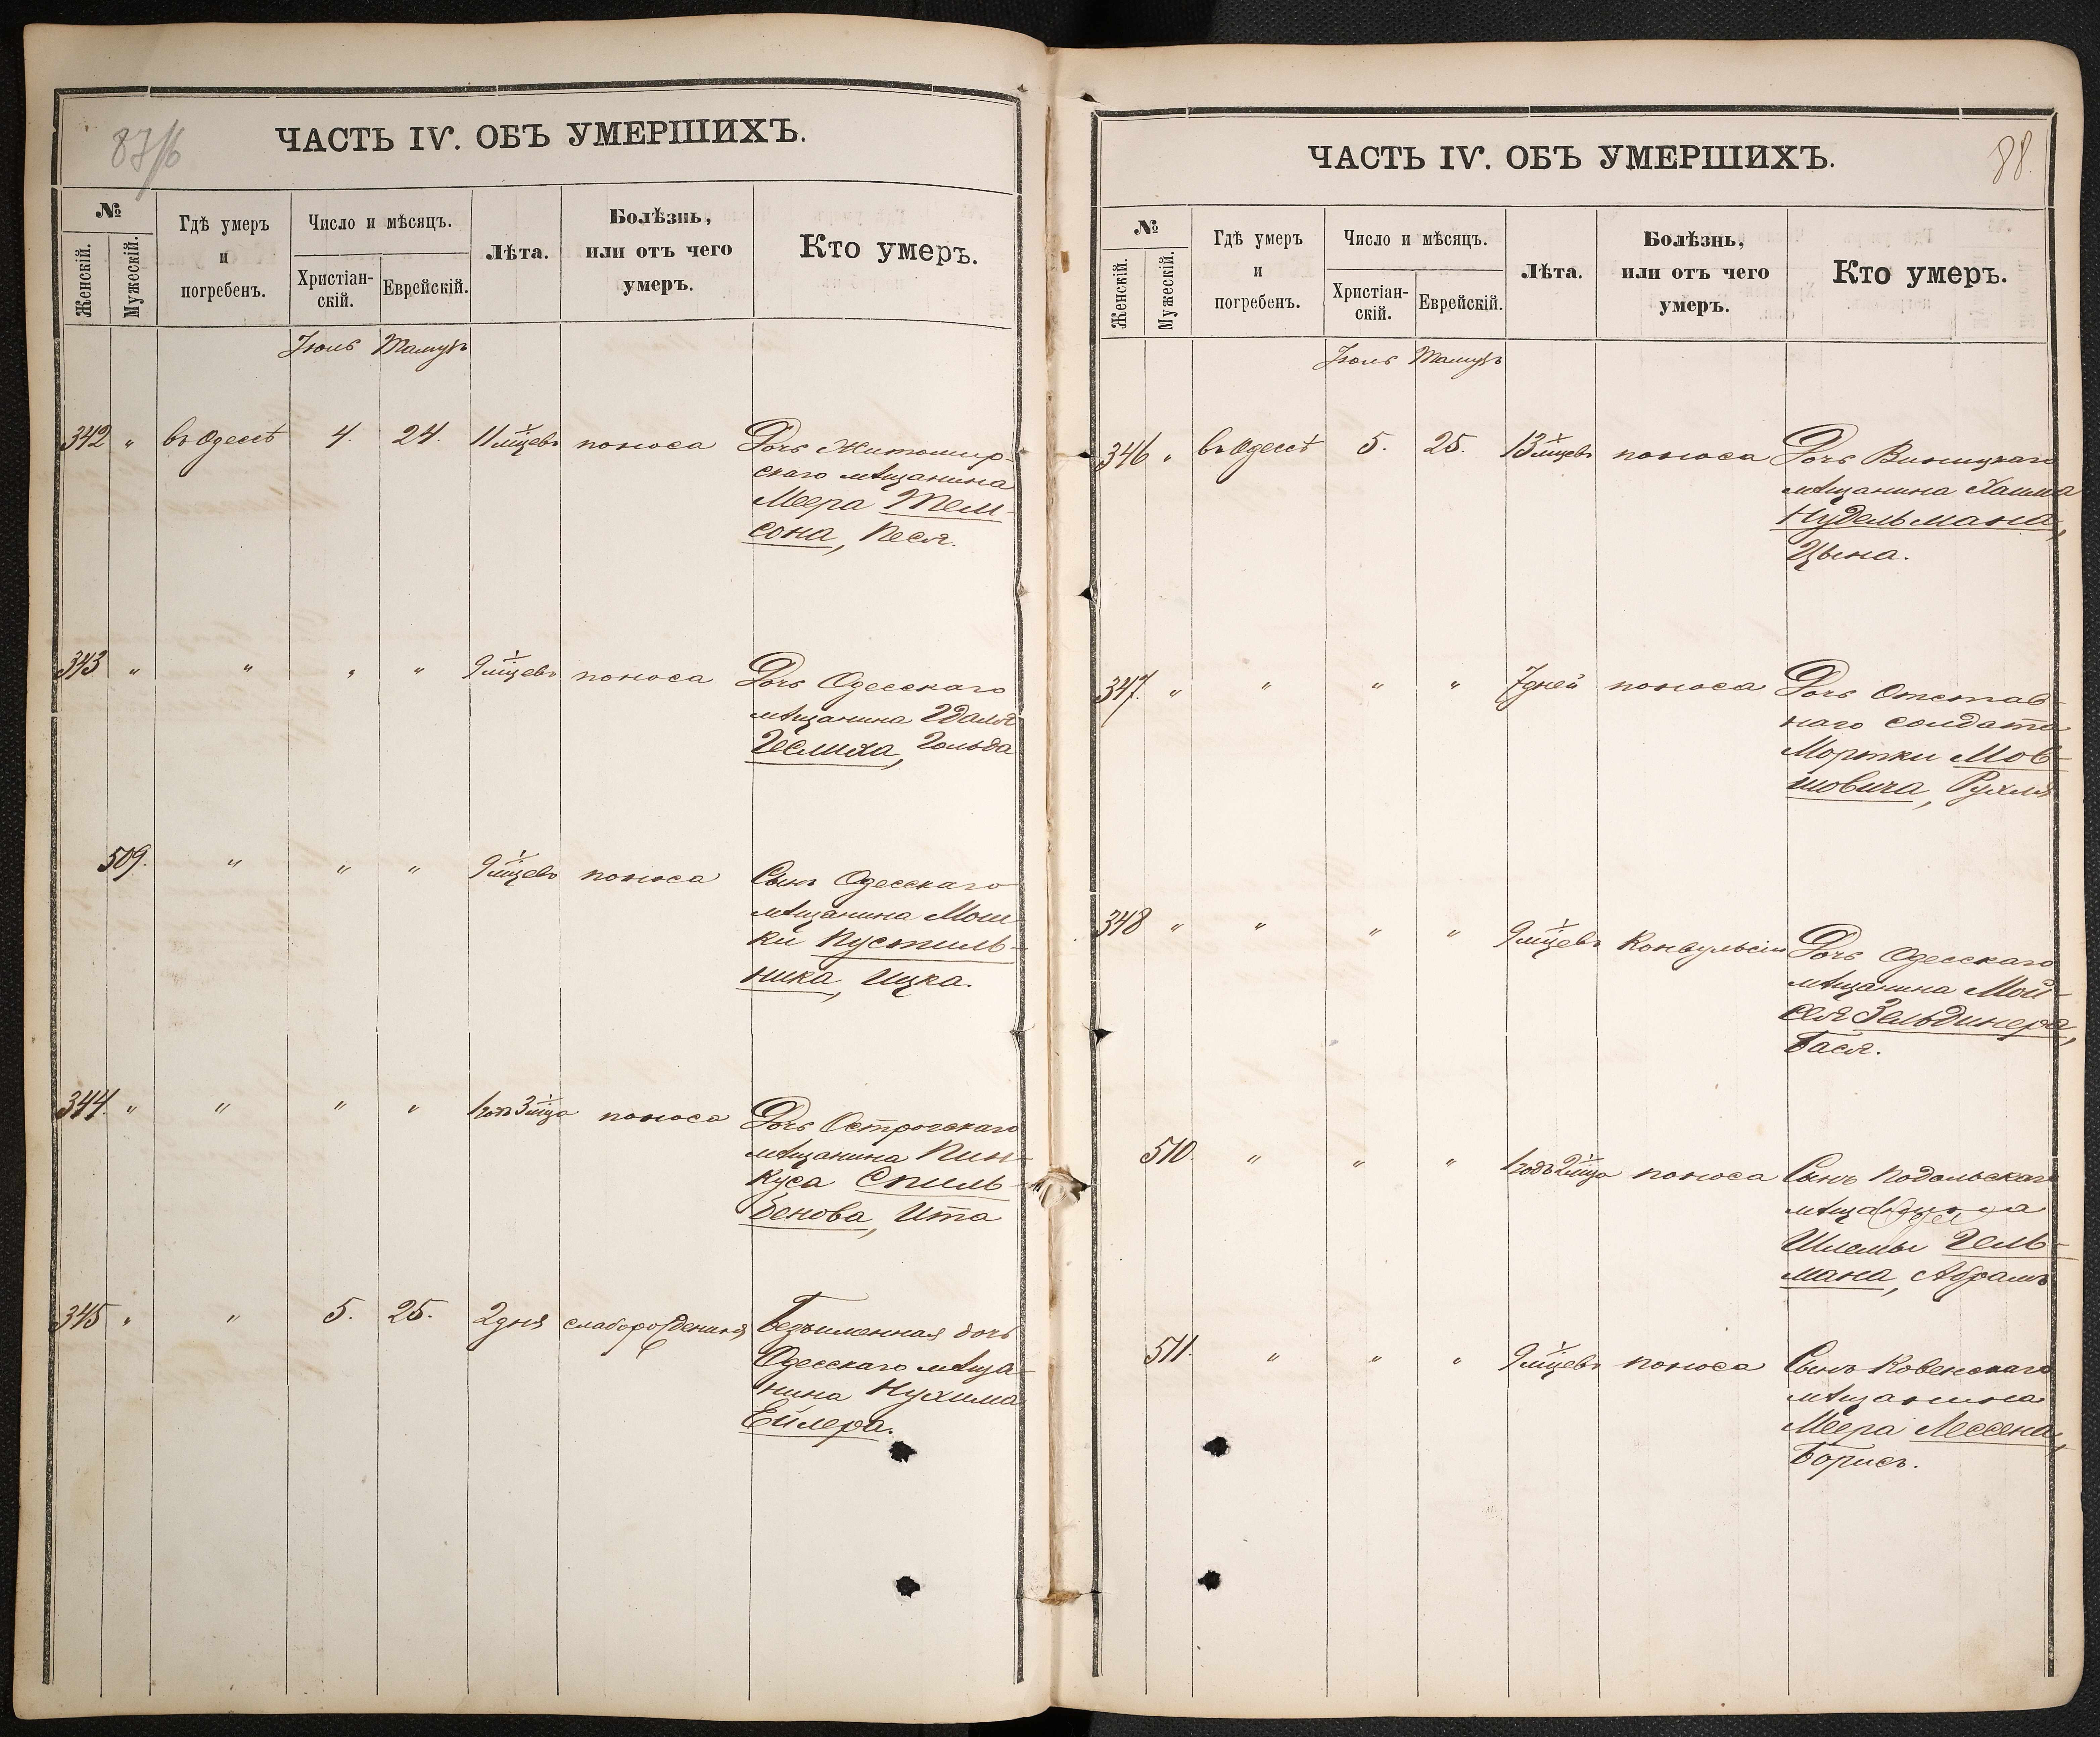 87/б
ЧАСТЬ IV. ОБЪ УМЕРШИХЪ.
№
Женскій.
Мужескій.
Гдѣ умеръ
и
погребенъ.
Число и мѣсяцъ.
Христіан-
скій.
Еврейскій.
Лѣта.
Болѣзнь,
или отъ чего
умеръ.
Кто умеръ.
Іюль Тамузъ
342 " въ Одессѣ 4. 24. 11 м҃цевъ поноса Дочь Житомир-
скаго мѣщанина
Меера Тем-
сона, Песя.
343 " " " " 9 м҃цевъ поноса Дочь Одесскаго
мѣщанина Гдаля
Геслиха, Гольда
509. " " " 9 м҃цевъ поноса Сынъ Одесскаго
мѣщанина Мош-
ки Пустиль-
ника, Ицка.
344. " " " " 1 годъ 3 м҃ца поноса Дочь Острогскаго
мѣщанина Пин-
куса Спиль-
бенова, Ита
345 " " 5. 25. 2 дня слаборожденія Безъименная дочь
Одесскаго мѣща-
нина Нухима
Ейлера.
88.
ЧАСТЬ IV. ОБЪ УМЕРШИХЪ.
№
Женскій.
Мужескій.
Гдѣ умеръ
и
погребенъ.
Число и мѣсяцъ.
Христіан-
скій.
Еврейскій.
Лѣта.
Болѣзнь,
или отъ чего
умеръ.
Кто умеръ.
Іюль Тамузъ
346 " въ Одессѣ 5. 25. 13 м҃цевъ поноса Дочь Виницкаго
мѣщанина Хаима
Нудельмана,
Цына.
347. " " " " 7 дней поноса Дочь Отстав-
наго солдата
Мортки Мов-
шовича, Рухля
348 " " " " 9 м҃цевъ Конвульсіи Дочь Одесскаго
мѣщанина Мой-
сея Зельдинера,
Бася.
510. " " " 1 годъ 2 м҃ца поноса Сынъ Подольскаго
Шлемы Гель-
мана, Абрамъ
511. " " " 9 м҃цевъ поноса Сынъ Ковенскаго
мѣщанина
Меера Лессена,
Борисъ.